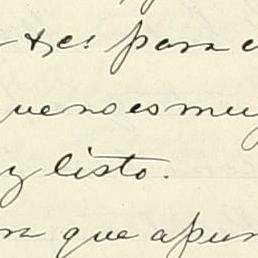 para
que no es muy
y listo.
que apun